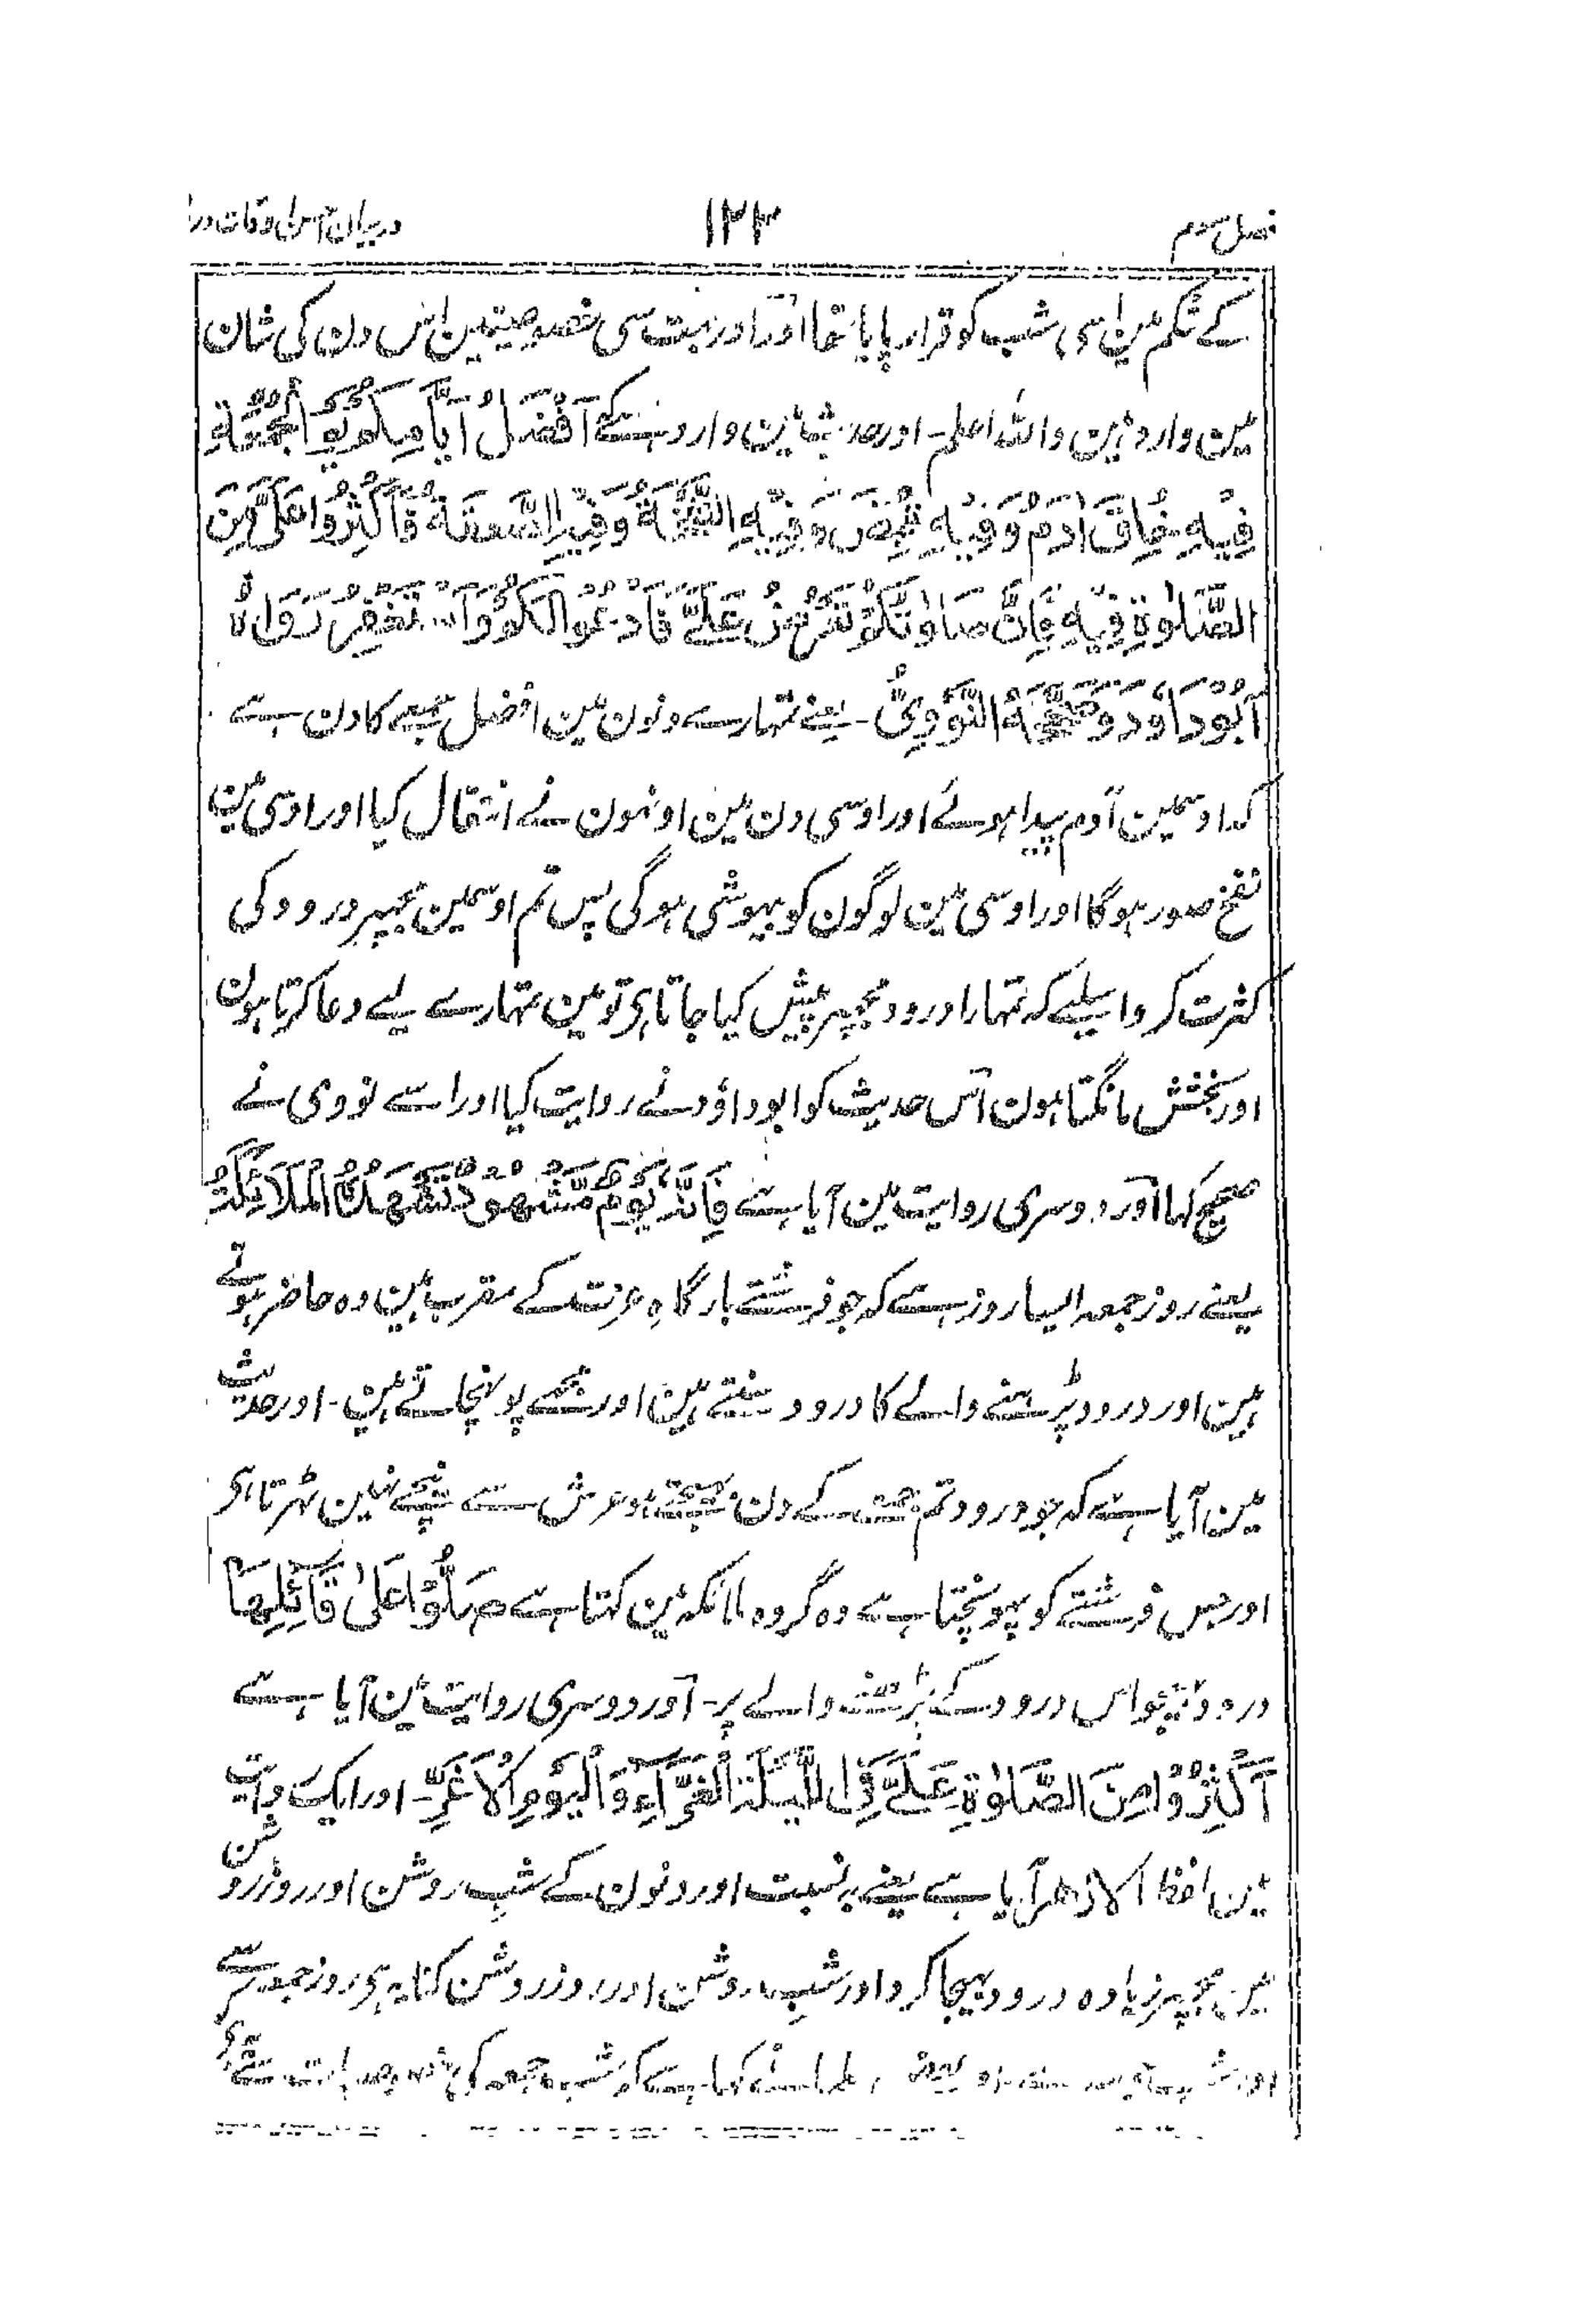 فصل سوم ۱۲۳ در بیان اوقات
کے شکم مین اوسی شب کو قرار پایا تھا اور اور بہت سی خصوصیتین اس دن کی شان
مین وارد ہین واللہ اعلم۔ اور حدیث مین وارد ہے کہ اَفْضَلُ اَیَّامِکُمْ یَوْمُ الْجُمُعَۃِ
فِیْہِ خُلِقَ اٰدَمُ وَفِیْہِ قُبِضَ وَفِیْہِ النَّفْخَۃُ وَفِیْہِ الصَّعْقَۃُ فَاَکْثِرُوْا عَلَیَّ مِنَ
الصَّلٰوۃِ فِیْہِ فَاِنَّ صَلٰوتَکُمْ تُعْرَضُ عَلَیَّ فَاَدْعُوْا لَکُمْ وَاَسْتَغْفِرُ رَوَاہُ
اَبُوْدَاوٗدَ وَصَحَّحَہُ النَّوَوِیُّ۔ یعنے تمہارے دنون مین افضل جمعے کا دن ہے
کہ اوسمین آدم پیدا ہوئے اور اوسی دن مین اونہون نے انتقال کیا اور اوسی مین
نفخ صور ہوگا اور اوسی مین لوگون کو بیہوشی ہوگی پس تم اوسمین مجھپر درود کی
کثرت کرو اسلیے کہ تمہارا درود مجھپر پیش کیا جاتا ہی تو مین تمہارے لیے دعا کرتا ہون
اور بخشش مانگتا ہون اس حدیث کو ابوداؤد نے روایت کیا اور اسے نووی نے
صحیح کہا اور دوسری روایت مین آیا ہے فَاِنَّہٗ یَوْمٌ مَّشْھُوْدٌ تَشْھَدُہُ الْمَلَائِکَۃُ
یعنے روز جمعہ ایسا روز ہے کہ جو فرشتے بارگاہِ عزت کے مقرب ہین وہ حاضر ہوتے
ہین اور درود پڑہنے والے کا درود سنتے ہین اور مجھے پونہچاتے ہین۔ اور حدیث
مین آیا ہے کہ جو درود تم جمعے کے دن بھیجتے ہو عرش سے نیچے نہین ٹہرتا ہی
اور جس فرشتے کو پہونچتا ہے وہ گروہ ملائکہ مین کہتا ہے صَلُّوْا عَلٰی قَآئِلِھَا
درود بھیجو اس درود کے پڑہنے والے پر۔ اور دوسری روایت مین آیا ہے
اَکْثِرُوْا مِنَ الصَّلٰوۃِ عَلَیَّ فِی اللَّیْلَۃِ الْغَرَّآءِ وَالْیَوْمِ الْاَغَرِّ۔ اور ایک روایت
مین لفظ الازھر آیا ہے یعنے بہ نسبت اور دنون کے شبِ روشن اور روز روشن
مین مجھپر زیادہ درود بھیجا کرو اور شبِ روشن اور روز روشن کنایہ ہی روز جمعہ سے
علما نے کہا ہے کہ شب جمعہ کی